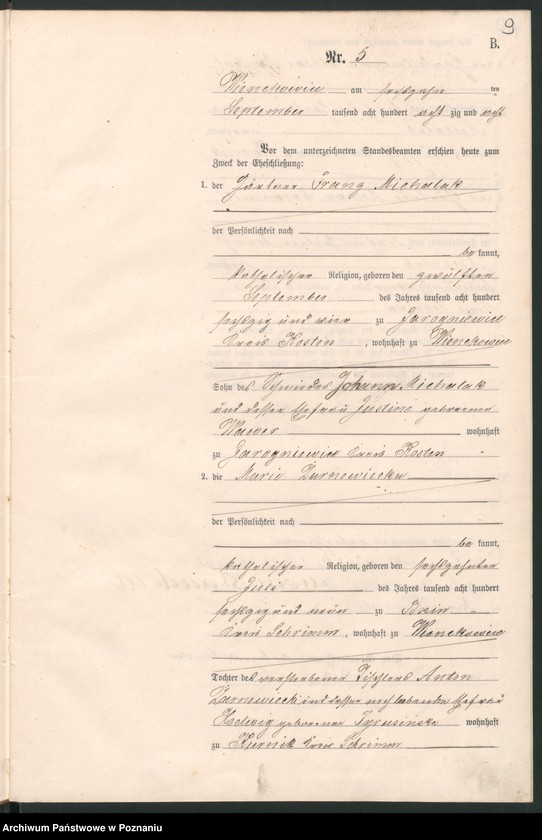 9
B.
Nr. 5
Wienckowice am sechzehn ten
September tausend acht hundert acht zig und acht
Vor dem unterzeichneten Standesbeamten erschien heute zum
Zweck der Eheschließung:
1. der Gärtner Franz Michalak
der Persönlichkeit nach
be kannt,
katholischer Religion, geboren den zwölften
September des Jahres tausend acht hundert
sechzig und vier zu Jarogniewice
Kreis Kosten , wohnhaft zu Wienckowice
Sohn des Schmiedes Johann Michalak
und dessen Ehefrau Justine geborene
Wawer wohnhaft
zu Jarogniewice Kreis Kosten
2. die Marie Zarnowiecka
der Persönlichkeit nach
be kannt,
katholischer Religion, geboren den sechzehnten
Juli des Jahres tausend acht hundert
sechzig und neun zu Bnin
Kreis Schrimm , wohnhaft zu Wienckowice
Tochter des verstorbenen Tischlers Anton
Zarnowiecki und dessen noch lebenden Ehefrau
Hedwig geborene wohnhaft
zu Kurnik Kreis Schrimm
Archiwum Państwowe w Poznaniu